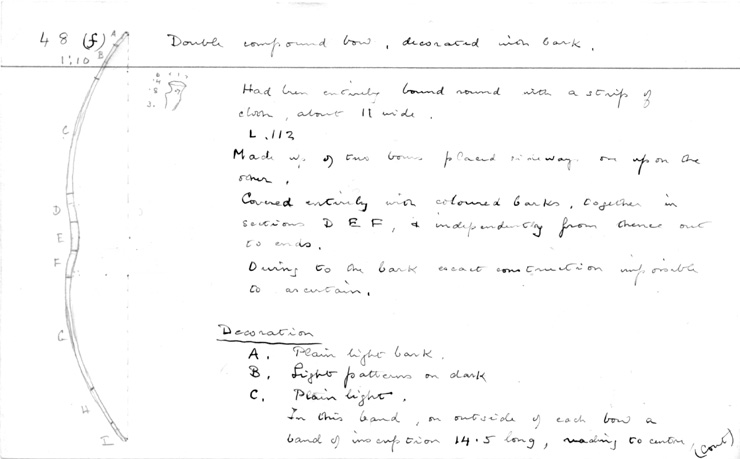 48 (f) Double compound bow, decorated with bark.
1:10
Had been entirely bound round with a strip of
cloth, about 11 wide.
L. 112
Made up of two bows placed sideways on upon the
other.
Covered entirely with coloured barks, together in
sections D E F, & independently from thence out
to ends.
Owing to the bark exact construction impossible
to ascertain.
Decoration
A. Plain light bark.
B. Light patterns on dark
C. Plain light.
In this band, on outside of each bow a
band of inscription 14.5 long, reading to centre,
(cont)
A
B
C
D
E
F
G
H
I